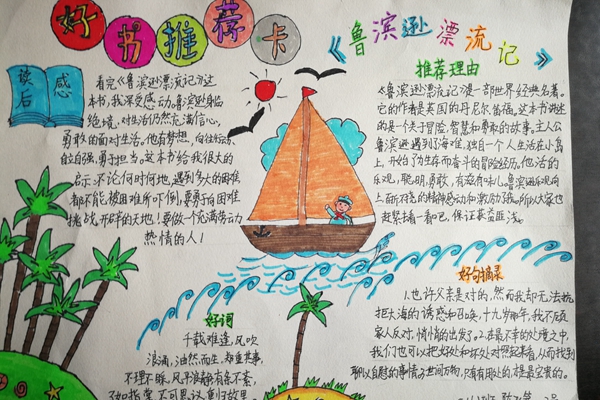 好书推荐卡
《鲁滨逊漂流记》
读后感
看完《鲁滨逊漂流记》这
本书,我深受感动。鲁滨逊身临
绝境,对生活仍然充满信心,
勇敢的面对生活。他有梦想,向往
自立自强,勇于担当。这本书给我很大的
启示:不论何时何地,遇到多大的困难
都不能被困难所吓倒,要勇于向困难
挑战,开辟的天地!要做一个充满劳动
热情的人!
推荐理由
《鲁滨逊漂流记》是一部世界经典名著。
它的作者是英国的丹尼尔笛福。这本书讲述
的是一个关于冒险,智慧和勇敢的故事。主人公
鲁滨逊遇到了海难,独自一个人生活在小岛
上,开始了为生存而奋斗的冒险经历,他活的
乐观,聪明,勇敢,有滋有味儿。鲁滨逊乐观向
上而不挠的精神感动和激励我。所以大家也
赶紧读一看吧,保证获益匪浅。
好词
千载难逢,风吹
浪涌,油然而生,郑重其事,
不理不睬,风平浪静,有条不紊,
不可思议,重归故里
好句摘录
1.也许父亲是对的,然而我却无法抗
拒大海的诱惑和召唤,十九岁那年,我不顾
家人反对,悄悄的出发了。2.在最不幸的处境之中,
我们也可以把好处和坏处对照起来看,从而找到
聊以自慰的事情。3.世间万物,只有有用处的,才是宝贵的。